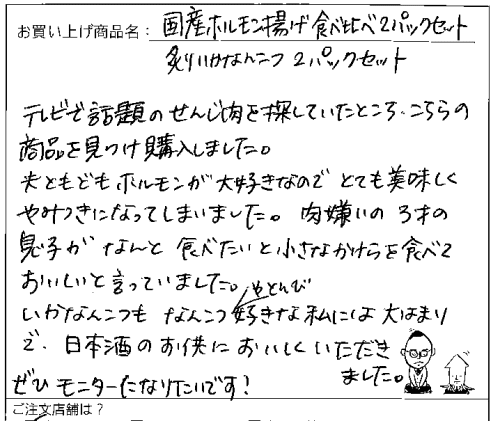 お買い上げ商品名： 国産ホルモン揚げ食べ比べ2パックセット
炙りいかなんこつ 2パックセット
テレビで話題のせんじ肉を探していたところ、こちらの
商品を見つけ購入しました。
夫ともどもホルモンが大好きなので とても美味しく
やみつきになってしまいました。 肉嫌いの 3才の
息子が なんと 食べたいと小さなかけらを食べて
おいしいと言っていました。
いかなんこつも なんこつ好きな私には 大はまり
で、日本酒のお供に おいしくいただき
ました。
ぜひ モニターになりたいです！
ご注文店舗は？